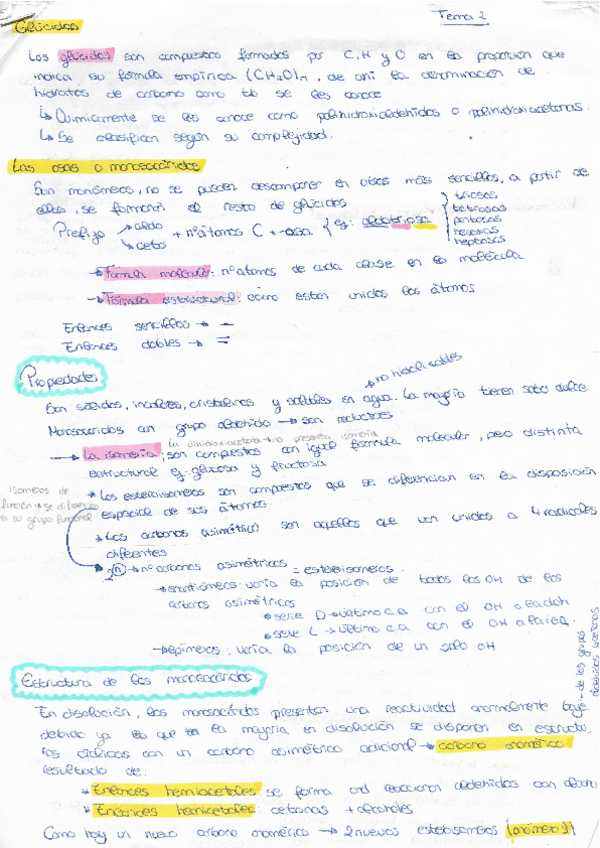 Tema 2
Glúcidos
Los glúcidos son compuestos formados por C, H y O en la proporción que
indica su fórmula empírica (CH₂O)n, de ahí la denominación de
hidratos de carbono como tb se les conoce
↳ Químicamente se les conoce como polihidroxialdehidos o polihidroxiacetonas.
↳ Se clasifican según su complejidad.
Las osas o monosacáridos
Son monómeros, no se pueden descomponer en otros más sencillos, a partir de
ellos, se formarán el resto de glúcidos
Prefijo → aldo
→ ceto
+ nº átomos C + -osa { ej: aldotriosa
triosas
tetrosas
pentosas
hexosas
heptosas
→ Fórmula molecular: nº átomos de cada clase en la molécula
→ Fórmula estructural: cómo estan unidos los átomos
Enlaces sencillos → —
Enlaces dobles → =
Propiedades
→ no hidrolizables
Son sólidos, incoloros, cristalinos y solubles en agua. La mayoría tienen sabor dulce
Monosacáridos con grupo aldehido → son reductores
La dihidroxiacetona → no presenta isomería
→ La isomería: son compuestos con igual fórmula molecular, pero distinta
estructural ej: glucosa y fructosa
isomeros de
función → se diferencian
en su grupo funcional
* Los estereoisomeros son compuestos que se diferencian en la disposición
espacial de sus átomos.
* Los carbonos asimétricos son aquellos que van unidos a 4 radicales
diferentes
2ⁿ → nº carbonos asimétricos = estereoisomeros.
→ enantiómeros: varía la posición de todos los OH de los
carbonos asimétricos
* serie D → último c.a con el OH a la dch
* serie L → último c.a con el OH a la izq.
→ epímeros: varía la posición de un solo OH
Estructura de los monosacáridos
- de los grupos
aldehidos y cetonas
En disolución, los monosacáridos presentan una reactividad anormalmente baja
debido ya que en la mayoría en disolución se disponen en estructu-
ras cíclicas con un carbono asimétrico adicional → carbono anomérico
resultado de:
* Enlaces hemiacetales: se forma reaccionan aldehidos con alcohol
* Enlaces hemicetales: cetonas + alcoholes
Como hay un nuevo carbono anomérico → 2 nuevos estereoisomeros (anómeros)